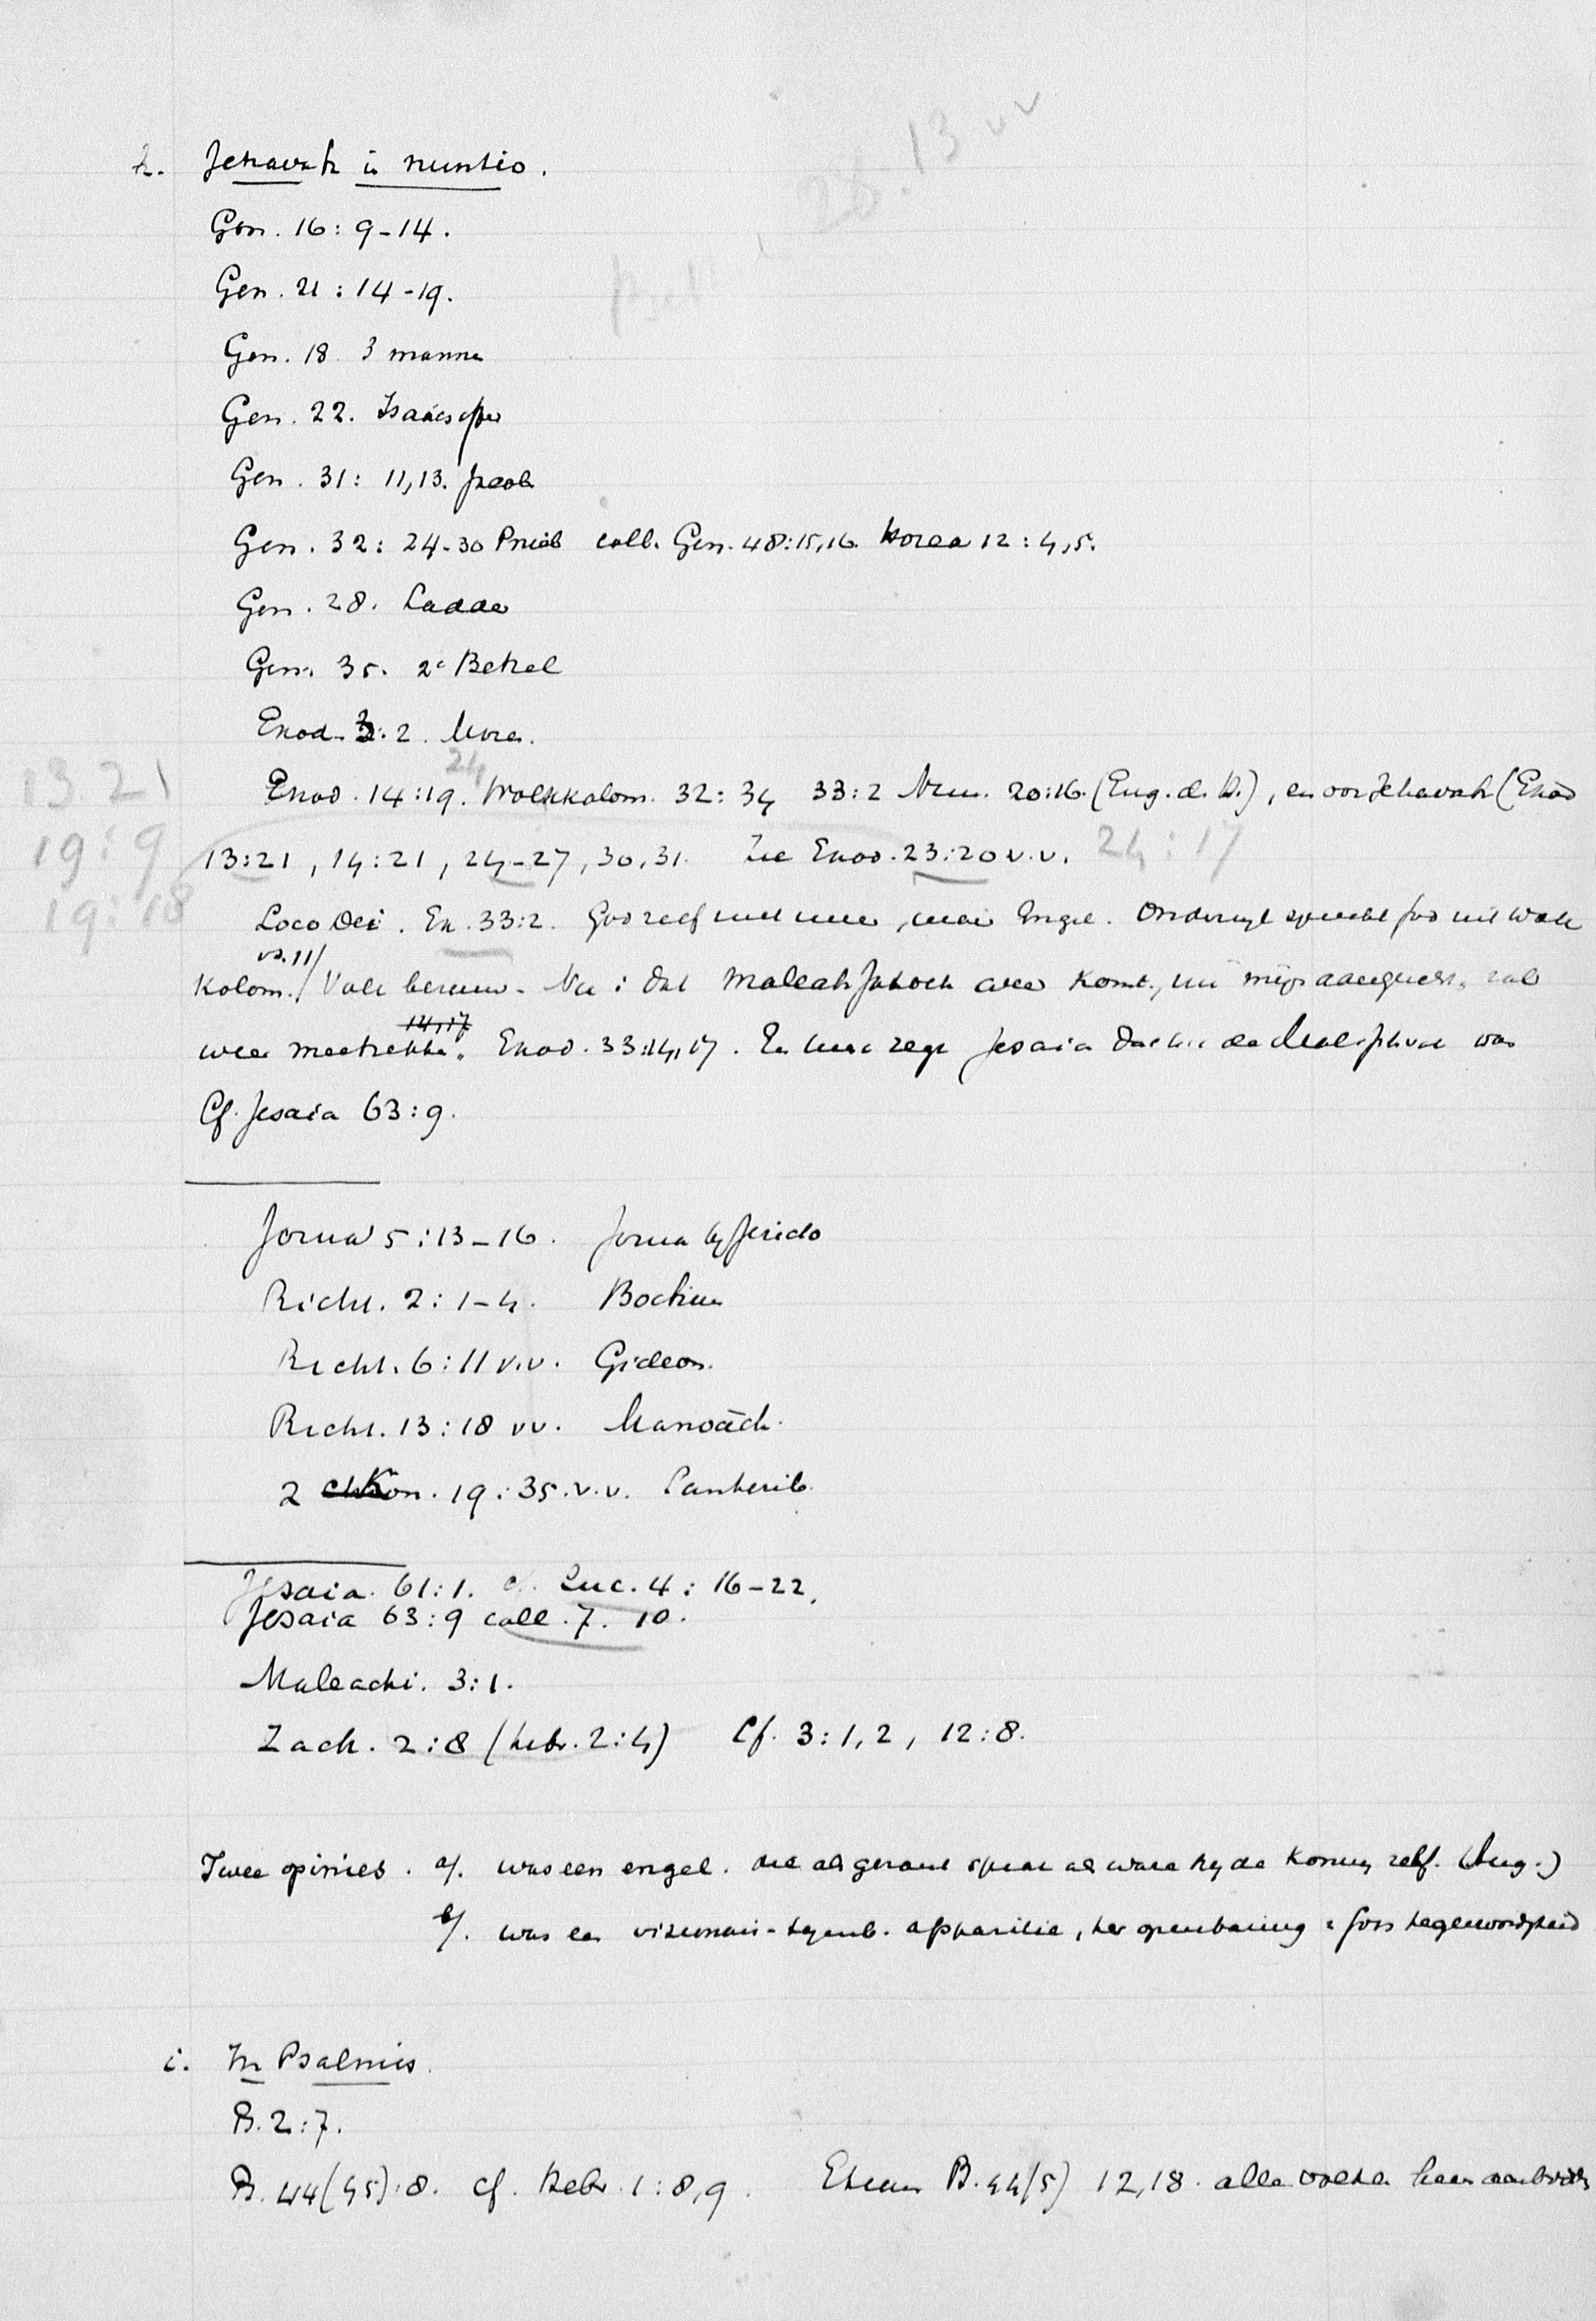 28.13 vv
h. Jehovah in nuntio.
Gen. 16: 9-14.
Gen. 21: 14-19.
Gen. 18 3 mannen
Gen. 22. Isaäcs offer
Gen. 31: 11,13. Jacob
Gen. 32: 24-30 Pniël coll. Gen. 48:15,16. Hosea 12: 4,5.
Gen. 28. Ladder
Gen. 35. 2e Bethel
Exod. 3:2. Mozes.
24
13.21
Exod. 14:19. Wolkkolom. 32: 34 33:2 Num. 20:16. (Eng. d. H.), en voor Jehovah (Exod
19:9
13:21, 14:21, 24-27, 30,31. Zie Exod. 23:20 v.v. 24:17
19:18
Loco Dei. Ex. 33:2. God zelf niet meer, maar Engel. God uit wolk
vs. 11/
kolom./ Volk berouw. Nu: dat Maleach Jehovah weer komt,
14,17
weer meetrekken. Exod. 33:14,17. En zegt Jesaia dat de was
Cf. Jesaia 63:9.
Jozua 5:13-16. Jozua bij Jericho
Richt. 2: 1-4. Bochim
Richt. 6: 11 v.v. Gideon.
Richt. 13: 18 vv. Manoäch.
2 Kon. 19: 35. v.v. Sanherib.
Jesaia. 61:1. cf. Luc. 4: 16-22.
Jesaia 63:9 coll. 7. 10.
Maleachi. 3:1.
Zach. 2:8 (hebr. 2:4) Cf. 3:1,2, 12:8.
Twee opinies. a/. was een engel. die als gezant sprak als ware hij de Koning zelf. (Aug.)
b/. was een visionair-symb. apparitie, ter openbaring v. Gods tegenwoordigheid
i. In Psalmis.
Ps. 2:7.
Ps. 44(45):8. cf. Hebr. 1:8,9. Ps. 44(5) 12,18. alle volken